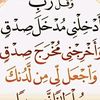 وَقُل رَّبِّ
أَدْخِلْنِي مُدْخَلَ صِدْقٍ
وَأَخْرِجْنِي مُخْرَجَ صِدْقٍ
وَاجْعَل لِّي مِن لَّدُنكَ